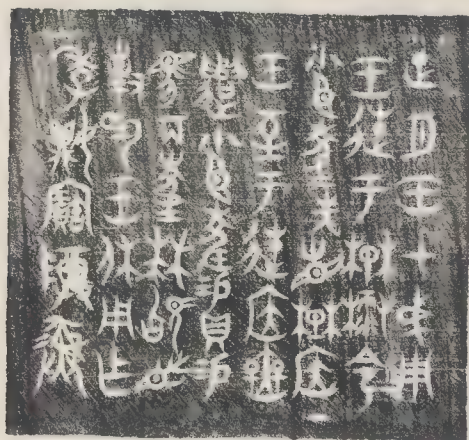 正月王才成周
王㣈于楚麓令
小臣夌先省楚㕇
王至于㣈㕇無
遣小臣夌易貝易
馬丙夌拜𩒨首
對揚王休用乍
季妘寶尊彝